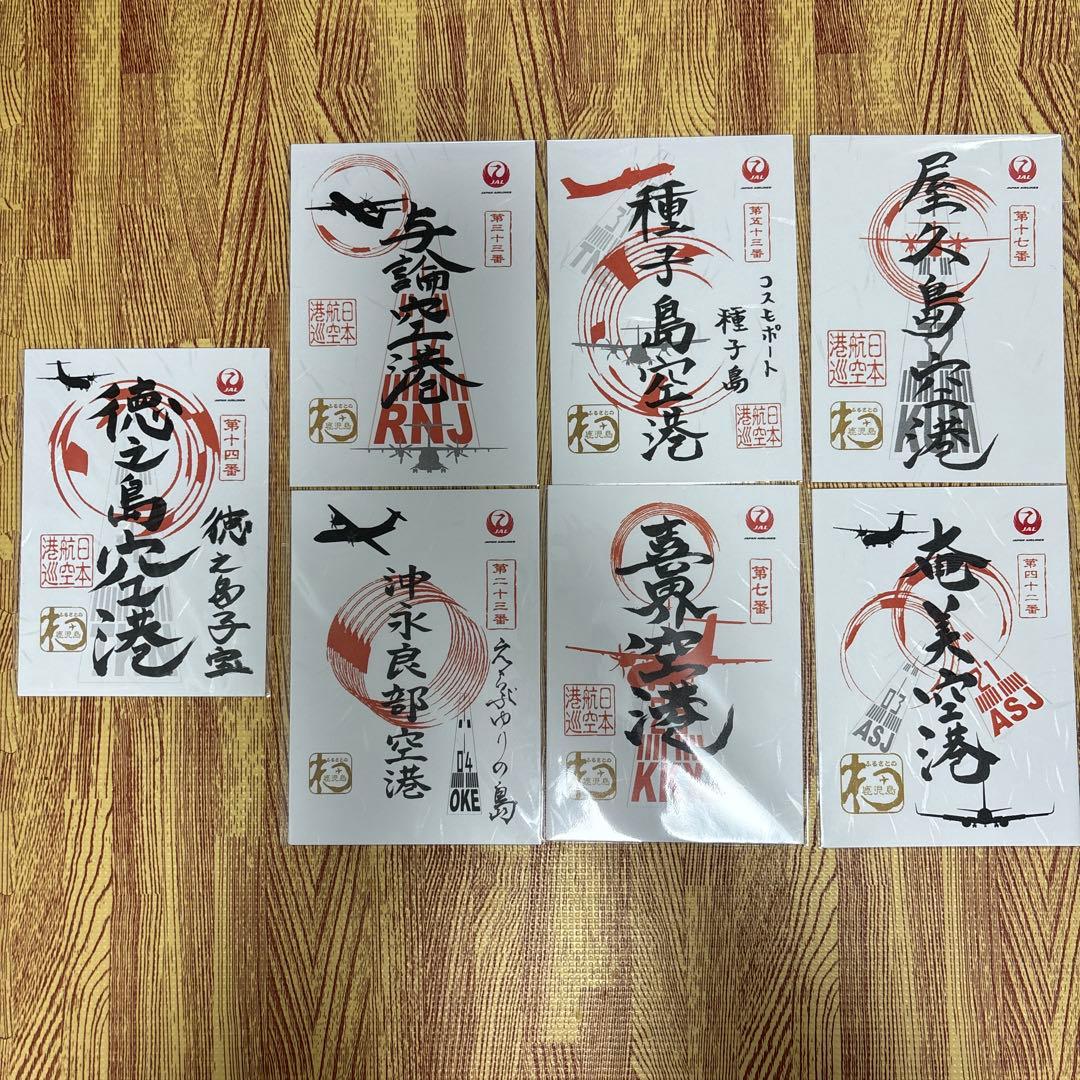 徳之島空港
JAL
JAPAN AIRLINES
第十四番
徳之島子宝
日本
航空
港巡
ふるさとの
鹿児島
与論空港
JAL
JAPAN AIRLINES
第三十三番
日本
航空
港巡
RNJ
ふるさとの
鹿児島
種子島空港
JAL
JAPAN AIRLINES
第五十三番
コスモポート
種子島
日本
航空
港巡
ふるさとの
鹿児島
屋久島空港
JAL
JAPAN AIRLINES
第十七番
日本
航空
港巡
ふるさとの
鹿児島
沖永良部空港
JAL
JAPAN AIRLINES
第二十三番
えらぶゆりの島
04
OKE
ふるさとの
鹿児島
喜界空港
JAL
JAPAN AIRLINES
第七番
日本
航空
港巡
ふるさとの
鹿児島
奄美空港
JAL
JAPAN AIRLINES
第四十二番
03
ASJ
21
ASJ
ふるさとの
鹿児島